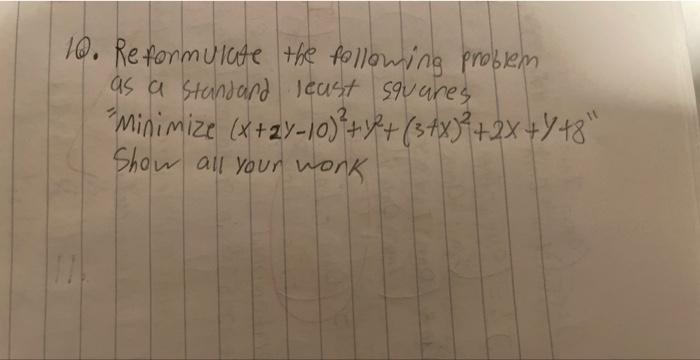 10. Reformulate the following problem
as a standard least squares
"Minimize (x+2y-10)²+y²+(3+x)²+2x+y+8"
Show all your work
11.